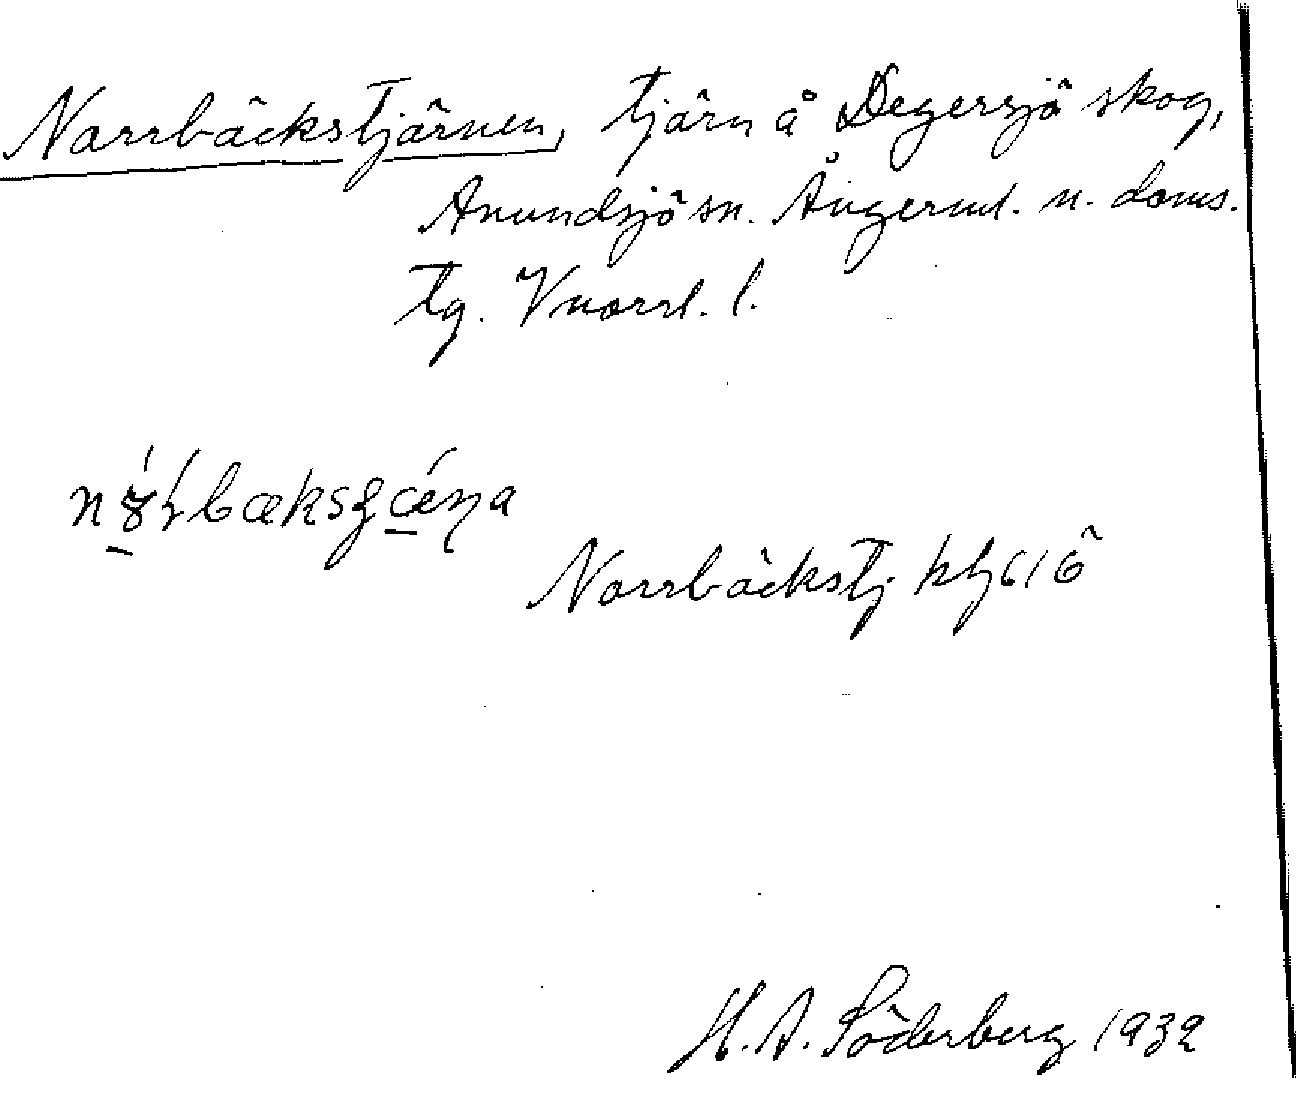 Norrbäckstjärnen, tjärn å Degersjö skog,
Anundsjö sn. Ångerml. n. doms.
tg. Vnorrl. l.
Norrbäckstj. hlj 61 ö
H. A. Söderberg 1932